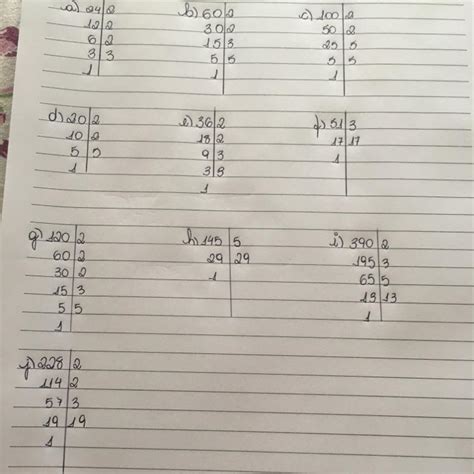 a) 24 | 2
12 | 2
6 | 2
3 | 3
1
b) 60 | 2
30 | 2
15 | 3
5 | 5
1
c) 100 | 2
50 | 2
25 | 5
5 | 5
1
d) 20 | 2
10 | 2
5 | 5
1
e) 36 | 2
18 | 2
9 | 3
3 | 3
1
f) 51 | 3
17 | 17
1
g) 120 | 2
60 | 2
30 | 2
15 | 3
5 | 5
1
h) 145 | 5
29 | 29
1
i) 390 | 2
195 | 3
65 | 5
13 | 13
1
j) 228 | 2
114 | 2
57 | 3
19 | 19
1